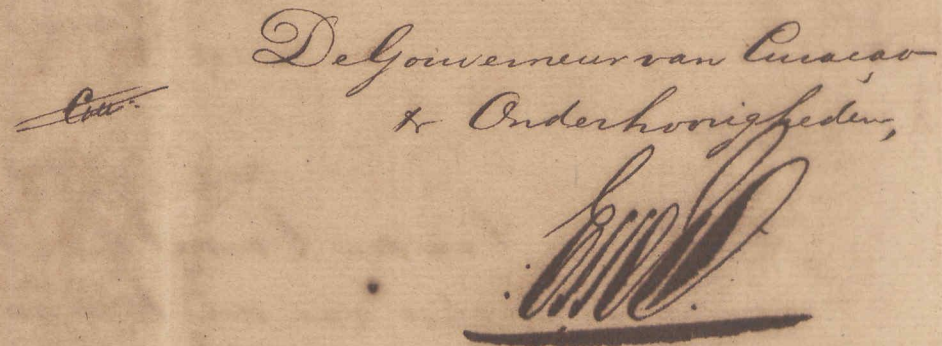 De Gouverneur van Curaçao
Coll:
& Onderhoorigheden,